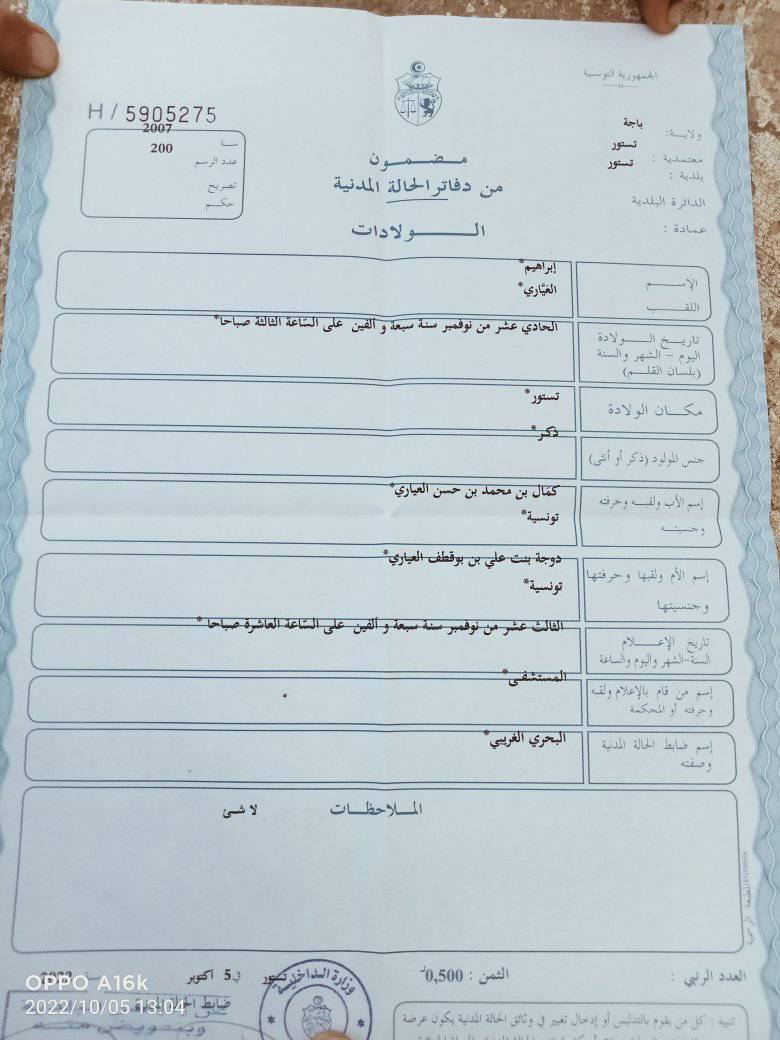 الجمهورية التونسية
H/5905275
ولاية: باجة
معتمدية: تستور
بلدية: تستور
الدائرة البلدية
عمادة:
سنة 2007
عدد الرسم 200
تصريح
حكم
مضمون
من دفاتر الحالة المدنية
الولادات
الإسم إبراهيم*
اللقب العيّاري*
تاريخ الولادة
اليوم - الشهر والسنة
(بلسان القلم)
الحادي عشر من نوفمبر سنة سبعة و ألفين على السّاعة الثالثة صباحا*
مكان الولادة تستور*
جنس المولود (ذكر أو أنثى) ذكر*
إسم الأب ولقبه وحرفته
وجنسيته
كمال بن محمد بن حسن العياري*
تونسية*
إسم الأم ولقبها وحرفتها
وجنسيتها
دوجة بنت علي بن بوقطف العياري*
تونسية*
تاريخ الإعلام
السنة-الشهر واليوم والساعة
الثالث عشر من نوفمبر سنة سبعة و ألفين على السّاعة العاشرة صباحا *
إسم من قام بالإعلام ولقبه
وحرفته أو المحكمة
المستشفى*
إسم ضابط الحالة المدنية
وصفته
البحري الغريبي*
الملاحظات لا شئ
المطبعة الرسمية
العدد الرتبي :
الثمن : 0,500
تستور في 5 أكتوبر
وزارة الداخلية
ضابط الحالة المدنية
وبتفويض منه
تنبيه : كل من يقوم بالتدليس أو إدخال تغيير في وثائق الحالة المدنية يكون عرضة
OPPO A16k
2022/10/05 13:04